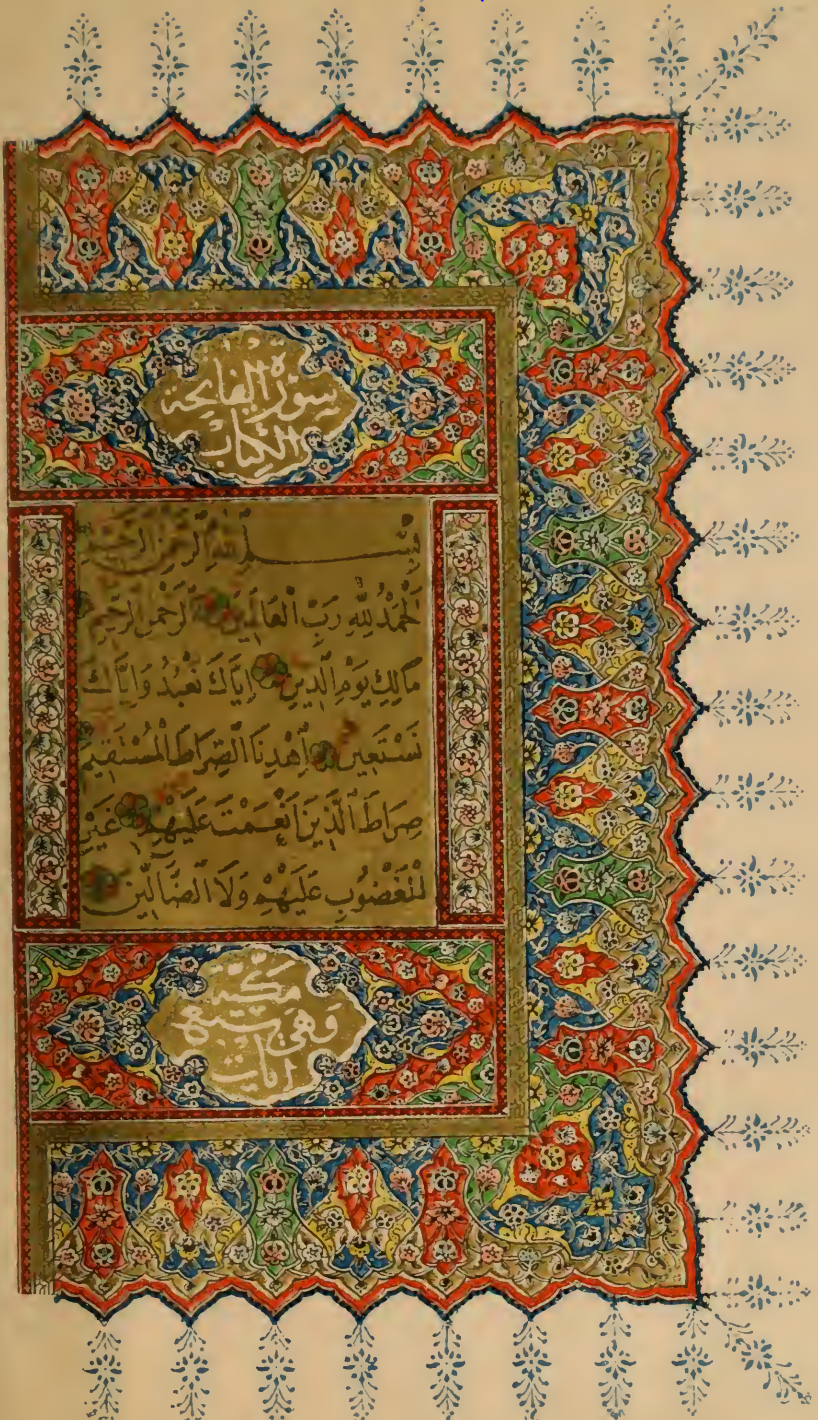 سورة الفاتحة
الكتاب
بسم الله الرحمن الرحيم
الْحَمْدُ لِلّٰهِ رَبِّ الْعَالَمِينَ الرَّحْمٰنِ الرَّحِيمِ
مَالِكِ يَوْمِ الدِّينِ اِيَّاكَ نَعْبُدُ وَاِيَّاكَ
نَسْتَعِينُ اِهْدِنَا الصِّرَاطَ الْمُسْتَقِيمَ
صِرَاطَ الَّذِينَ اَنْعَمْتَ عَلَيْهِمْ غَيْرِ
لْمَغْضُوبِ عَلَيْهِمْ وَلَا الضَّالِّينَ
مكية
وهي سبع
ايات